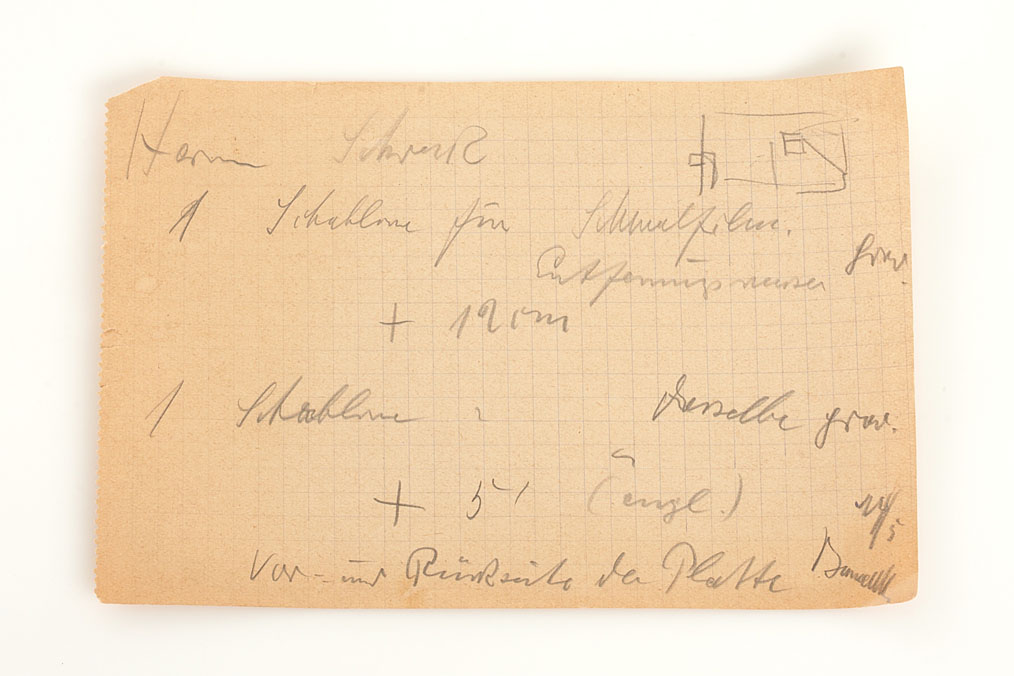 Herrn Schrenk
1 Schablone für Schmalfilm.
Entfernungsmesser grav.
+ 12 cm
1 Schablone " dasselbe grav.
+ 5' (engl.)
14/5
Vor- und Rückseite der Platte